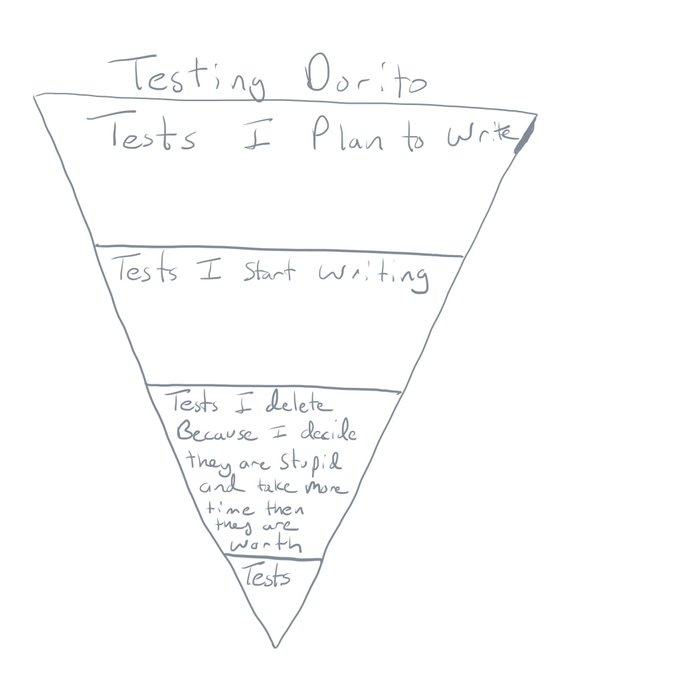 Testing Dorito
Tests I Plan to write
Tests I start writing
Tests I delete
Because I decide
they are stupid
and take more
time then
they are
worth
Tests